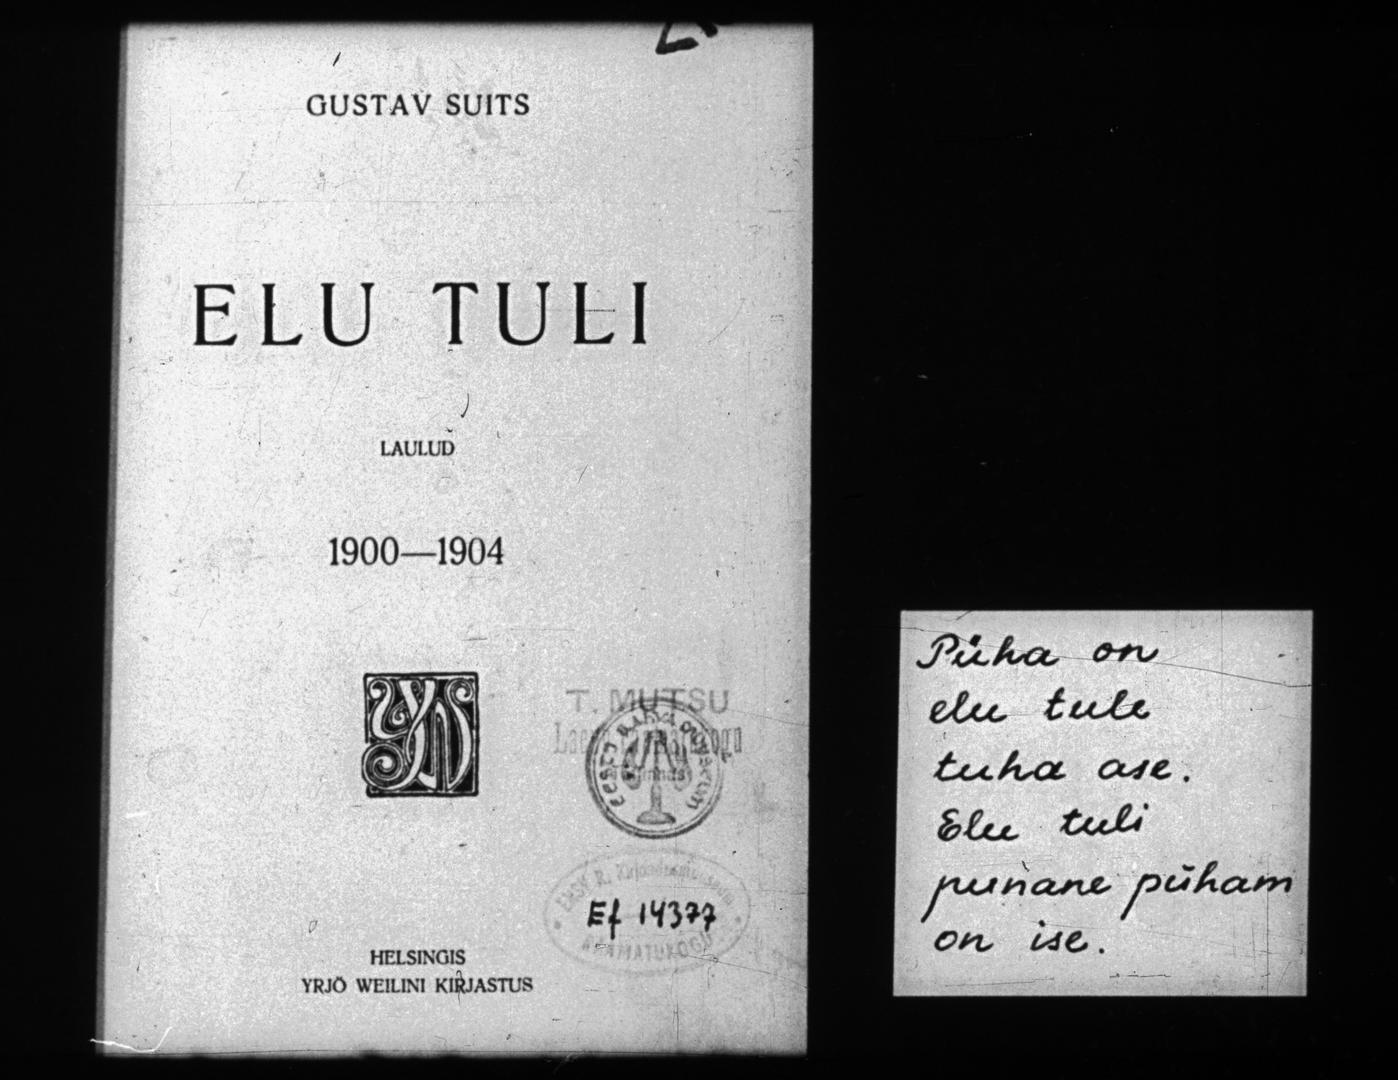 GUSTAV SUITS
ELU TULI
LAULUD
1900—1904
T. MUTSU
EESTI RAHVA MUUSEUM
ENSV R. Kirjandusmuuseum
Ef 14377
RAAMATUKOGU
HELSINGIS
YRJÖ WEILINI KIRJASTUS
Püha on
elu tule
tuha ase.
Elu tuli
punane püham
on ise.